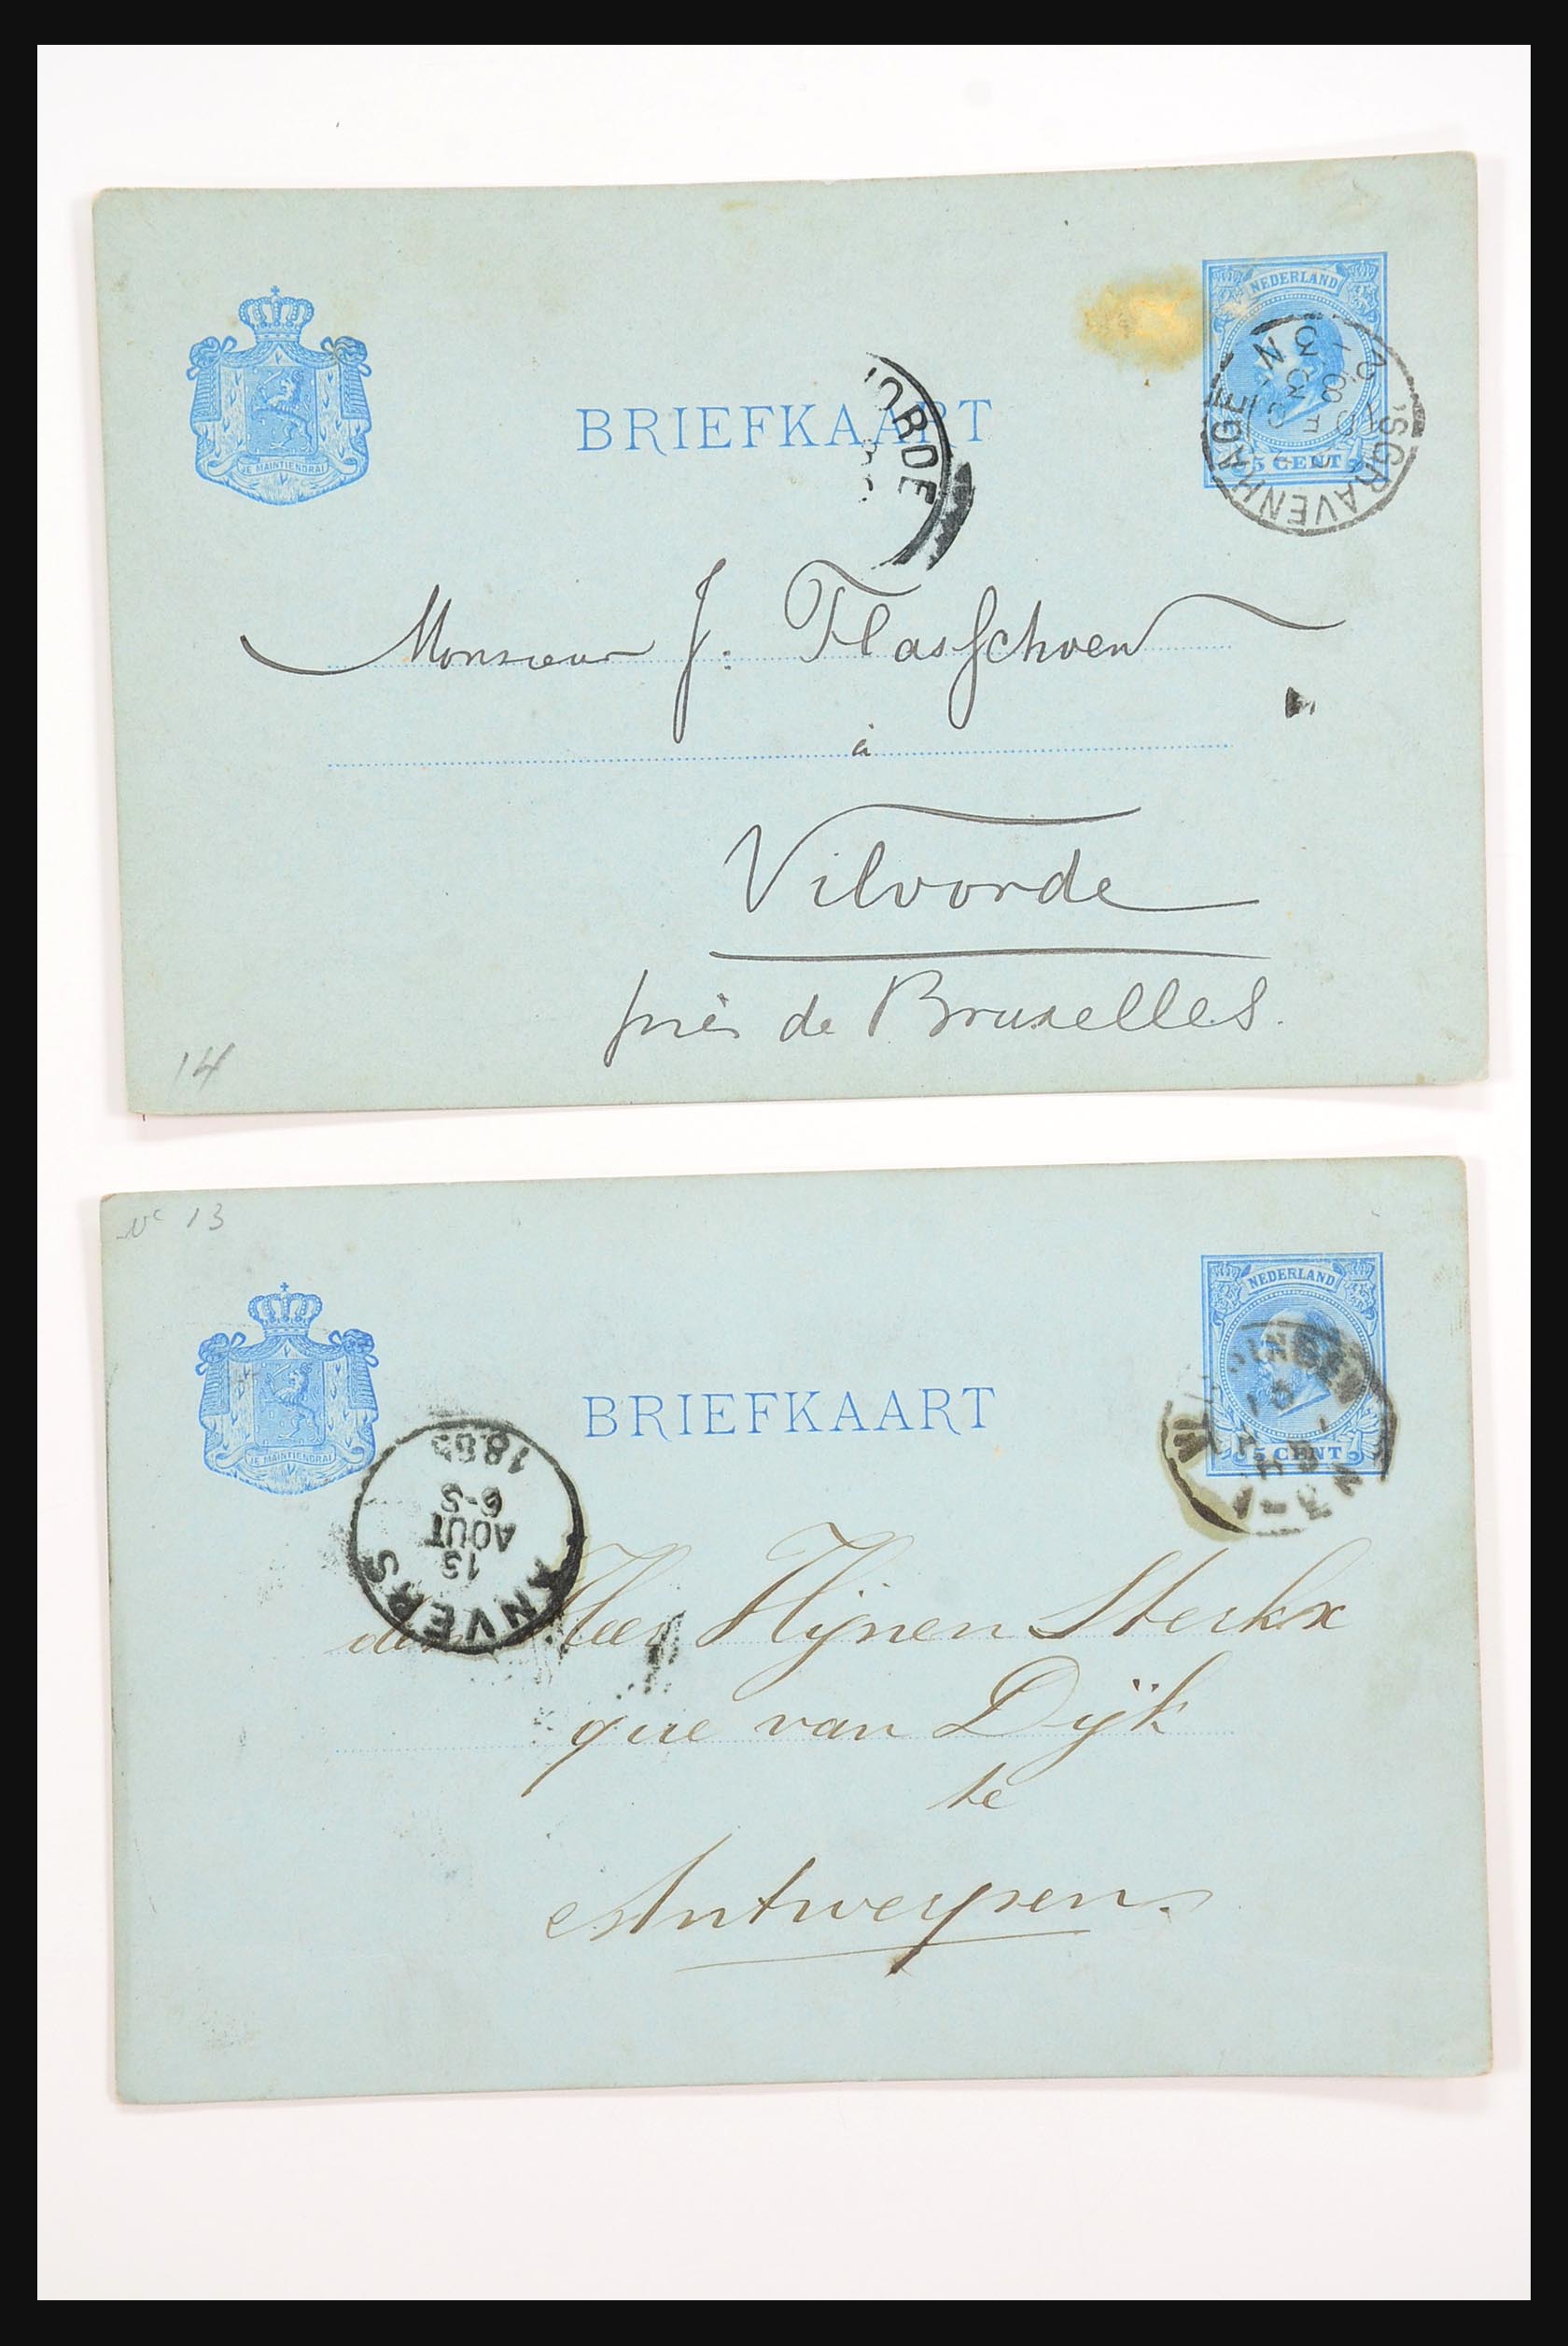 NEDERLAND
5 CENT
'SGRAVENHAGE
JE MAINTIENDRAI
BRIEFKAART
ORDE
Monsieur J. Flasschoen
à
Vilvorde
près de Bruxelles.
14
No 13
NEDERLAND
5 CENT
JE MAINTIENDRAI
BRIEFKAART
ANVERS
13
AOUT
6-S
188
den Heer Hijnen Sterkx
que van Dijk
te
Antwerpen.